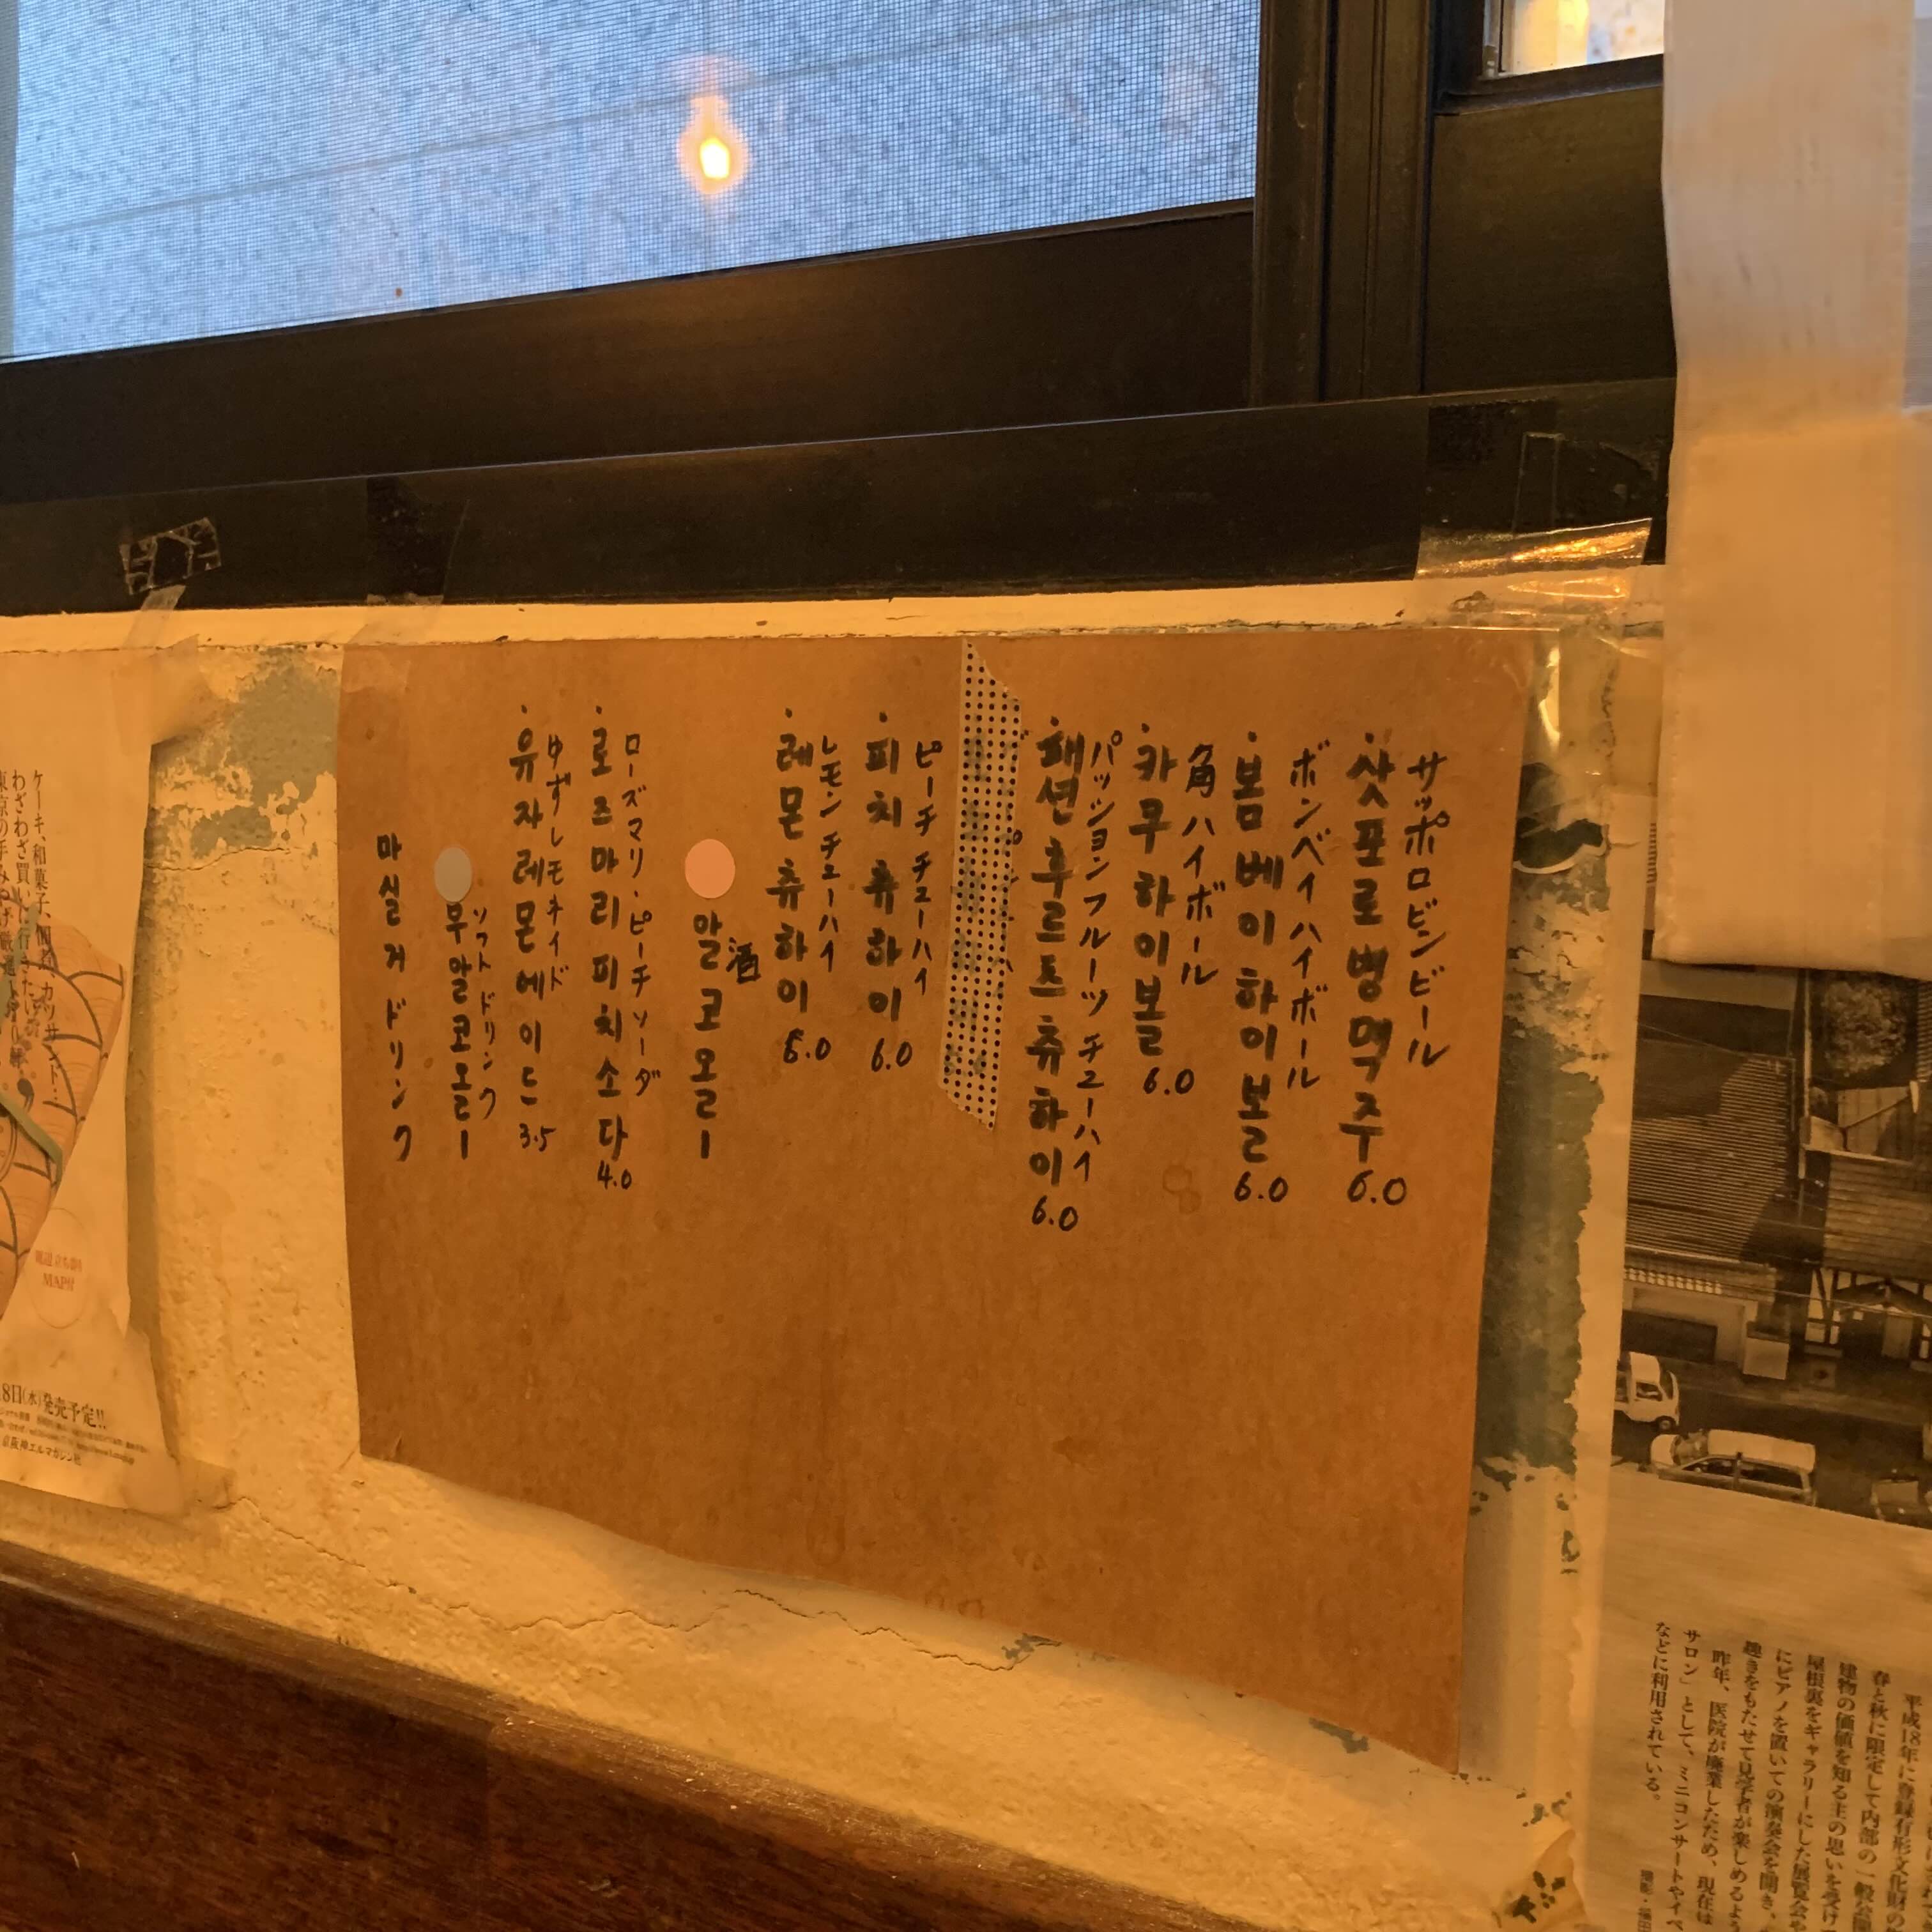 サッポロビンビール
삿포로병맥주 6.0
ボンベイハイボール
봄베이하이볼 6.0
角ハイボール
카쿠하이볼 6.0
パッションフルーツチューハイ
패션후르츠츄하이 6.0
ピーチチューハイ
피치츄하이 6.0
レモンチューハイ
레몬츄하이 6.0
酒
알코올ㅣ
ローズマリ・ピーチソーダ
로즈마리피치소다 4.0
ゆずレモネイド
유자레몬에이드 3.5
ソフトドリンク
무알코올ㅣ
마실거 ドリンク
ケーキ、和菓子、
カツサンド…
わざわざ買いに行きたい、
8日(水)発売予定!!
京阪神エルマガジン社
MAP付
平成18年に登録有形文化財の
春と秋に限定して内部の一般公
建物の価値を知る主の思いを受け
屋根裏をギャラリーにした展覧会や
にピアノを置いての演奏会を開き、
趣きをもたせて見学者が楽しめるよう
昨年、医院が廃業したため、現在は
サロン」として、ミニコンサートやイベ
などに利用されている。
撮影・福田